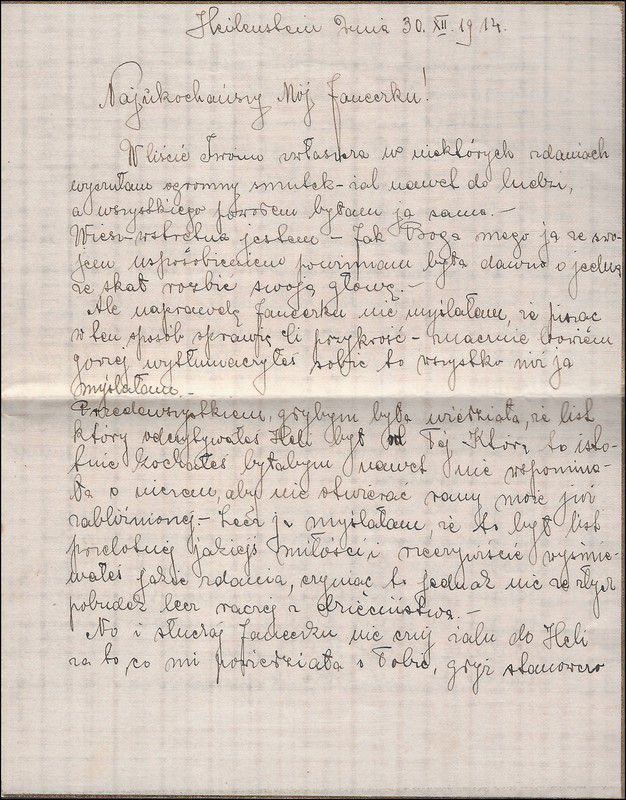 Heilenstein dnia 30. XII. 1914.
Najukochańszy Mój Janeczku!
W liście Twoim zwłaszcza w niektórych zdaniach
wyczułam ogromny smutek – żal nawet do ludzi,
a wszystkiego powodem byłam ja sama. –
Wiesz wstrętna jestem – Jak Boga mego ja ze swo-
jem usposobieniem powinnam była dawno o jedną
ze skał rozbić swoją głowę. –
Ale naprawdę Janeczku nie myślałam, że pisząc
w ten sposób sprawię Ci przykrość – znacznie bowiem
gorzej wytłumaczyłeś sobie to wszystko niż ja
myślałam. –
Przedewszystkiem, gdybym była wiedziała, że list
który odczytywałeś Heli był od Tej Którą to isto-
tnie kochałeś byłabym nawet nie wspomina-
ła o niczem, aby nie otwierać rany może już
zabliźnionej – Lecz ja myślałam, że to był list
przelotnej jakiejś miłości i rzeczywiście wyśmie-
wałeś jakieś zdania, czyniąc to jednak nie ze złych
pobudek lecz raczej z dzieciństwa. –
No i słuchaj Janeczku nie czuj żalu do Heli
za to, co mi powiedziała o Tobie, gdyż stanowczo